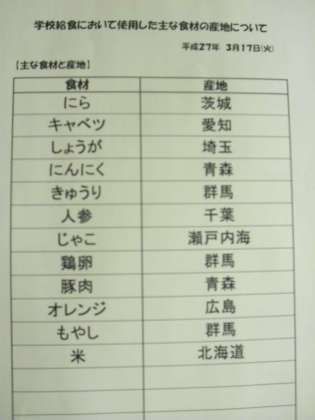 学校給食において使用した主な食材の産地について
平成27年 3月17日(火)
【主な食材と産地】
食材 産地
にら 茨城
キャベツ 愛知
しょうが 埼玉
にんにく 青森
きゅうり 群馬
人参 千葉
じゃこ 瀬戸内海
鶏卵 群馬
豚肉 青森
オレンジ 広島
もやし 群馬
米 北海道